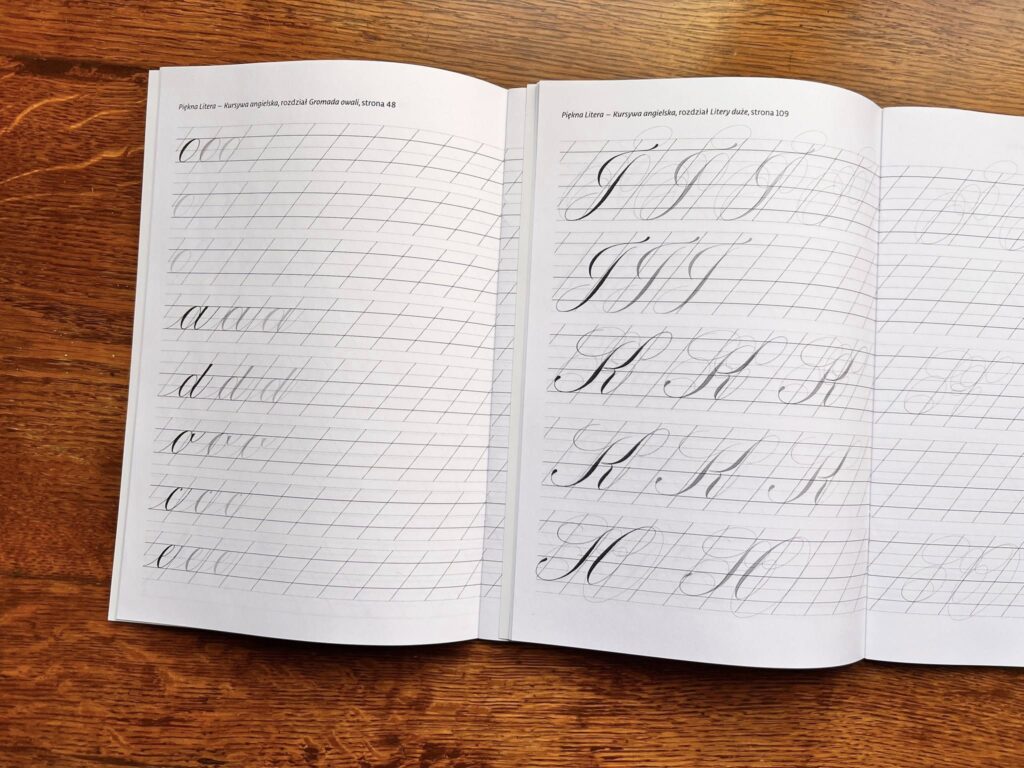 Piękna Litera – Kursywa angielska, rozdział Gromada owali, strona 48
o o o
o
o
a a a
d d d
o o o
c c c
e e e
Piękna Litera – Kursywa angielska, rozdział Litery duże, strona 109
I I I
I I I
K K K
K K K
H H